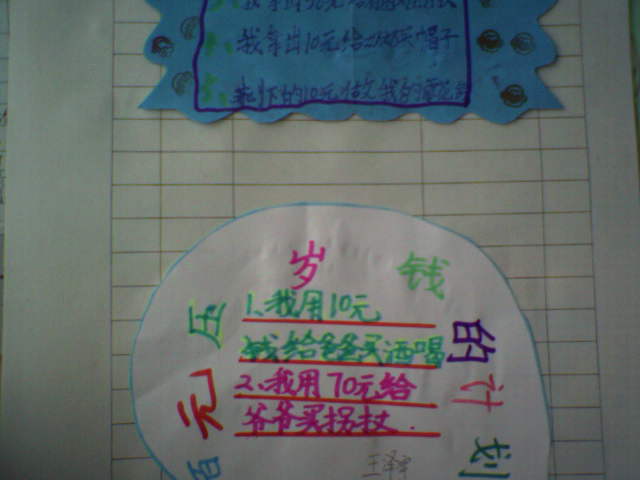 我拿出10元给买帽子
剩下的10元我的零花
百元压岁钱的计划
1、我用10元
钱给爸爸买酒喝
2、我用70元给
爷爷买拐杖.
王泽